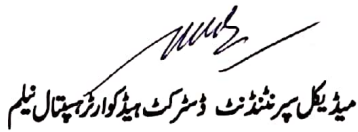 میڈیکل سپرنٹنڈنٹ ڈسٹرکٹ ہیڈکوارٹرہسپتال نیلم